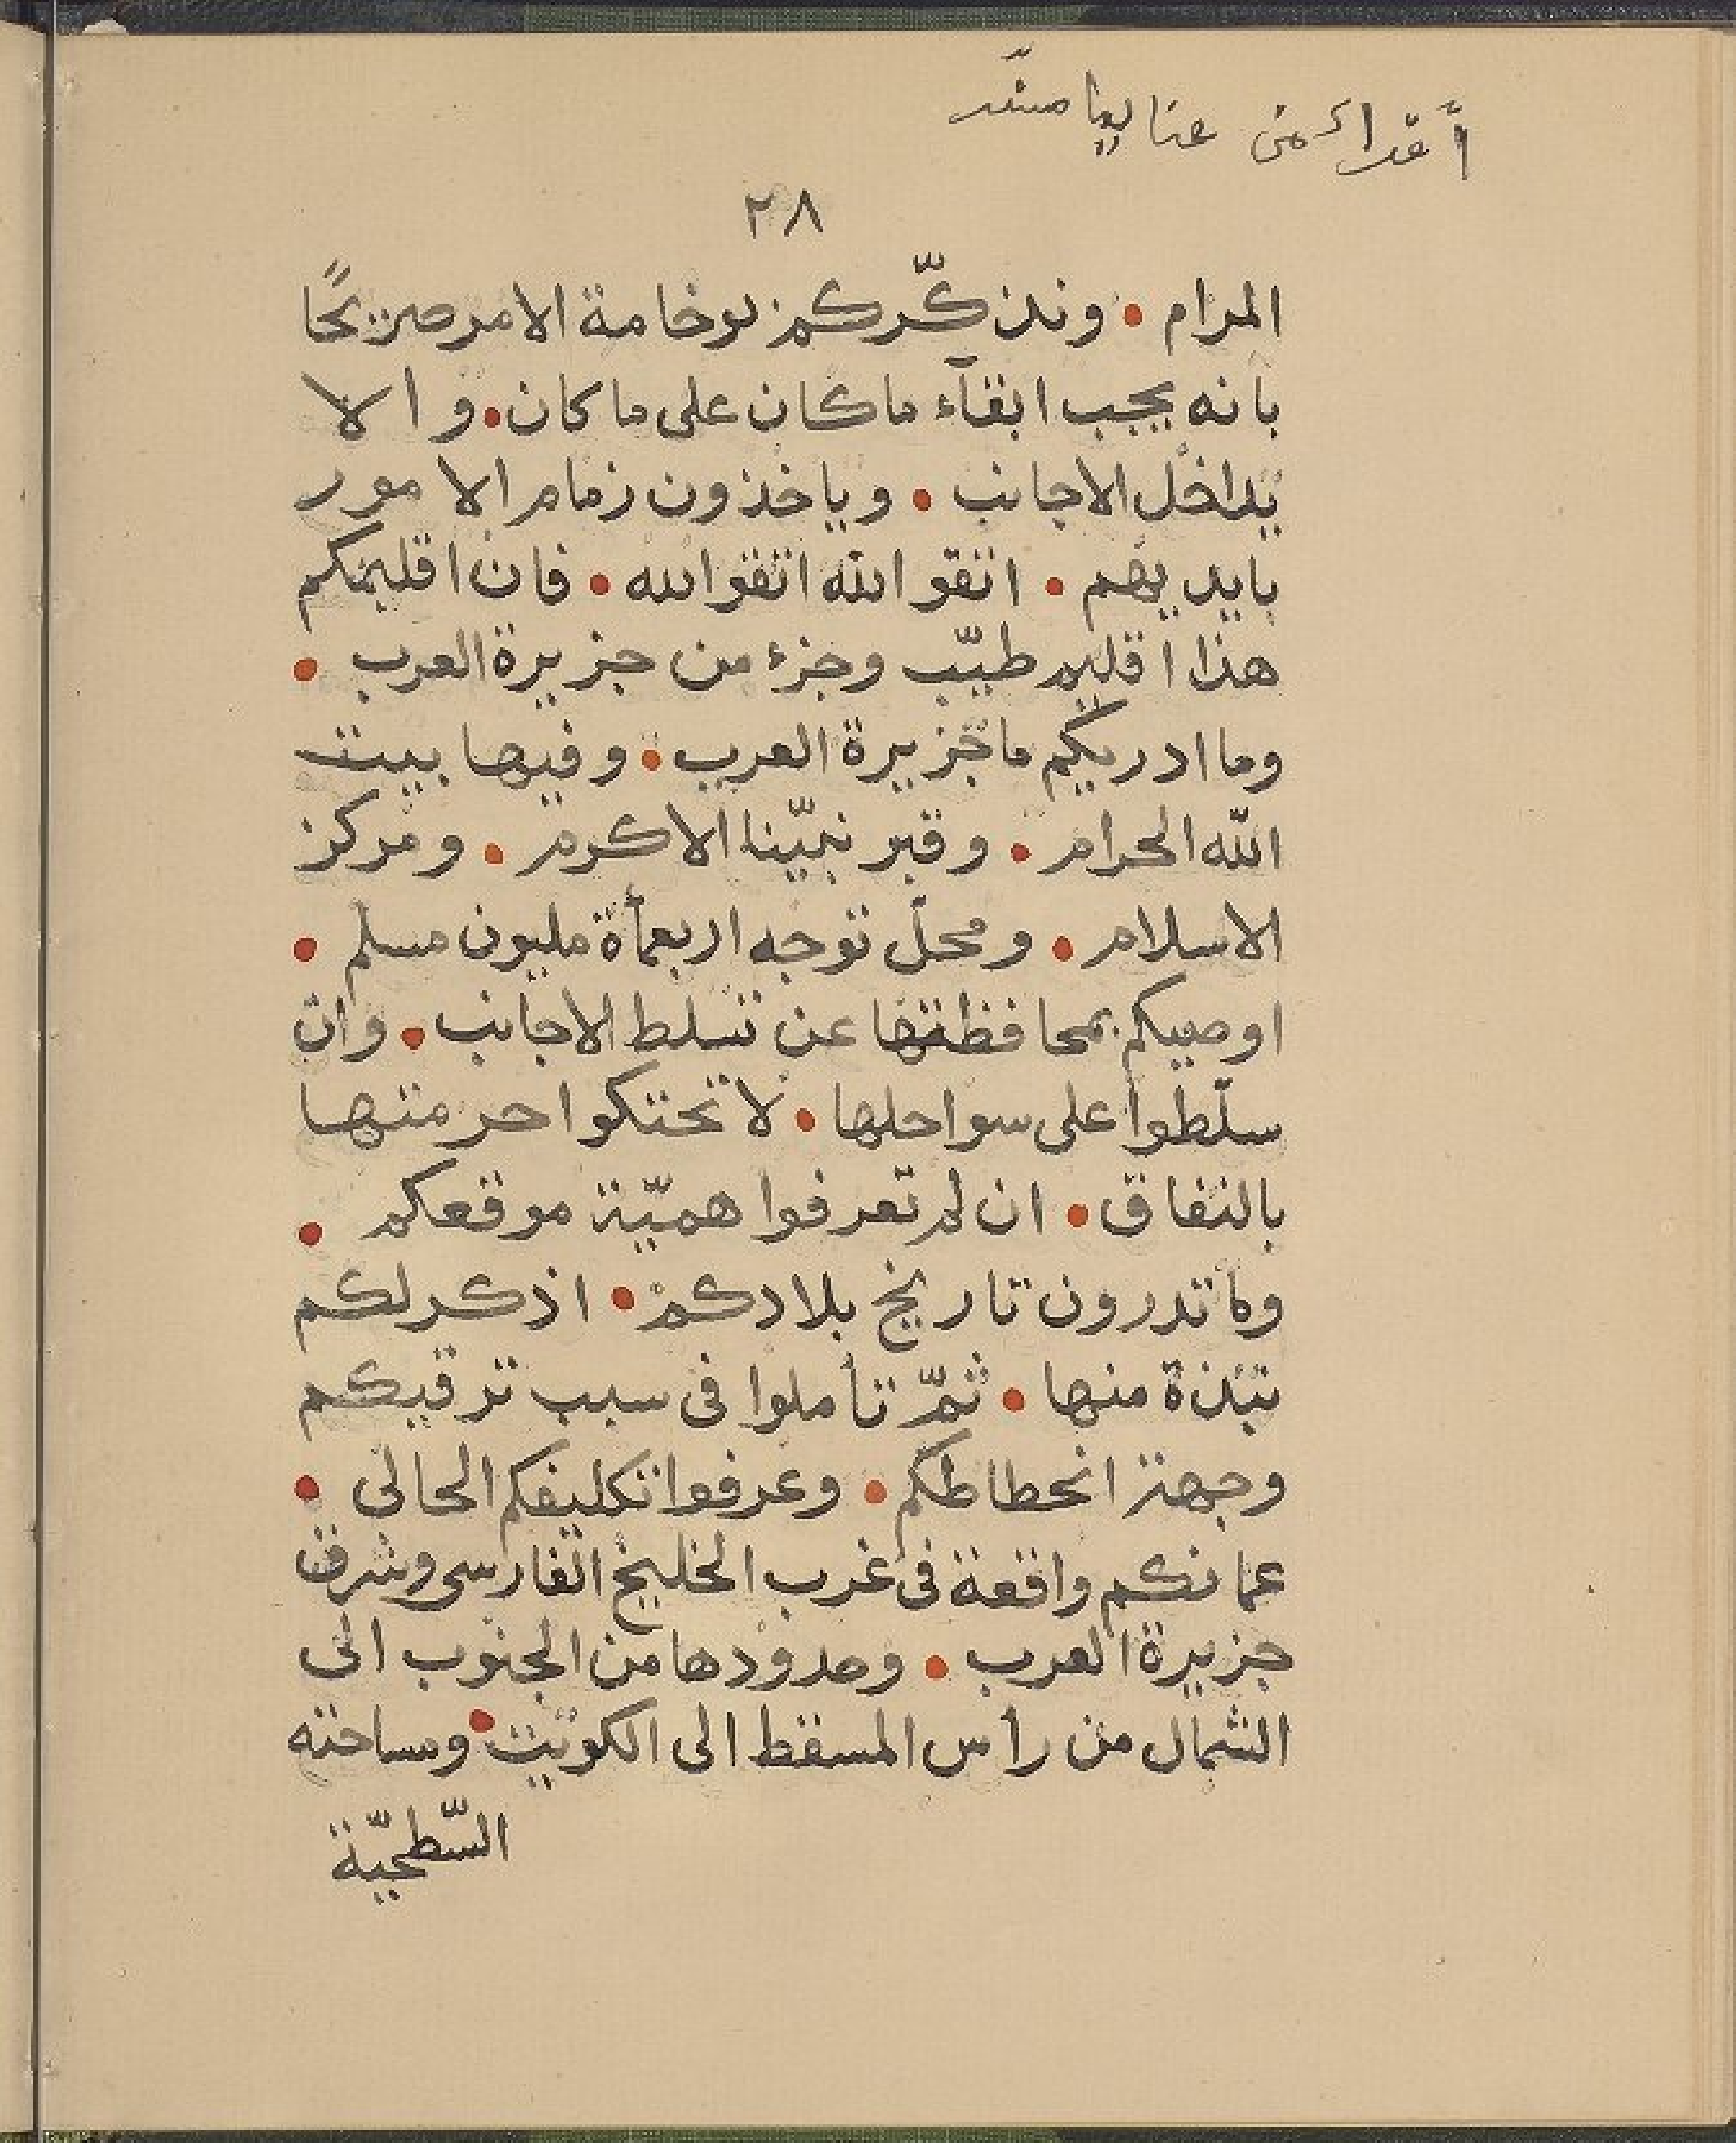 ٢٨
المرام • ونذكّركم لوخامة الامر صريحًا
بانه يجب ابقآء ماكان على ماكان • والا
يداخل الاجانب • وياخذون زمام الامور
بايديهم • اتقوا الله اتقوا الله • فان اقليمكم
هذا اقليم طيّب وجزء من جزيرة العرب •
وما ادريكم ما جزيرة العرب • وفيها بيت
الله الحرام • وقبر نبيّنا الاكرم • ومركز
الاسلام • ومحلّ توجه اربعمأة مليون مسلم •
اوصيكم بمحافظتها عن تسلط الاجانب • وان
سلّطوا على سواحلها • لا تحتكوا حرمتها
بالنفاق • ان لم تعرفوا همیّة موقعكم •
وما تدرون تاريخ بلادكم • اذكر لكم
نبذة منها • ثمّ تأملوا فى سبب ترقيكم
وجهة انحطاطكم • وعرفوا تكليفكم الحالى •
عمانكم واقعة فى غرب الخليج الفارسى وشرق
جزيرة العرب • وحدودها من الجنوب الى
الشمال من رأس المسقط الى الكويت • ومساحته
السّطحيّة